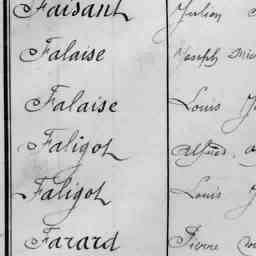 Faisant Julien
Falaise Joseph
Falaise Louis
Faligot Alfred
Faligot Louis
Farard Pierre